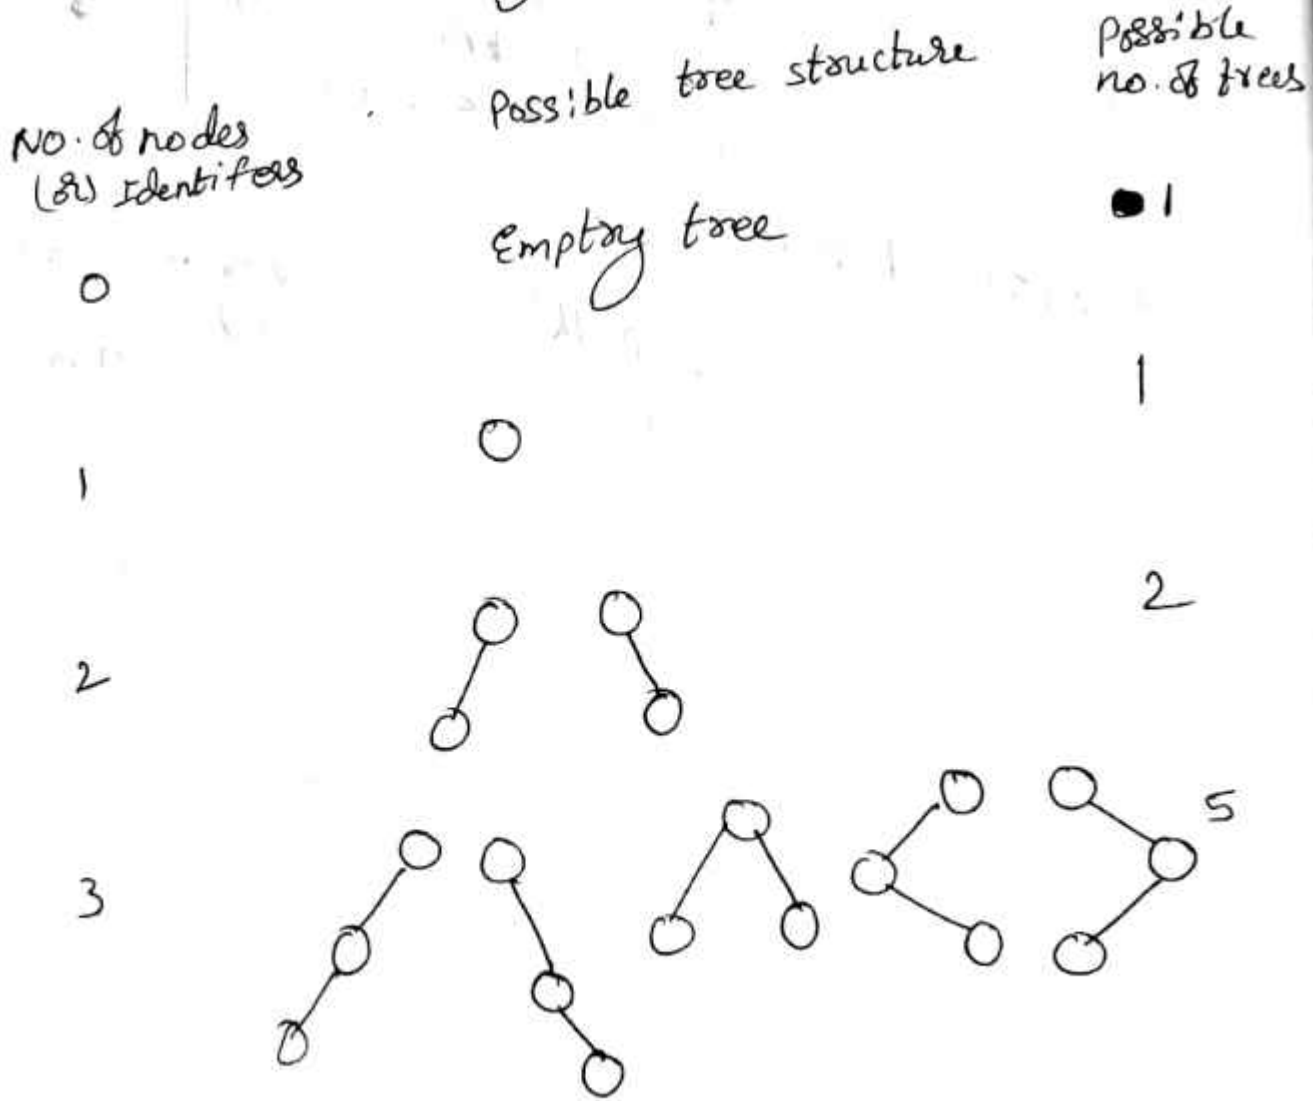 No. of nodes
(or) Identifers
Possible tree structure
Possible
no. of trees
0
Emptry tree
1
1
1
2
2
3
5